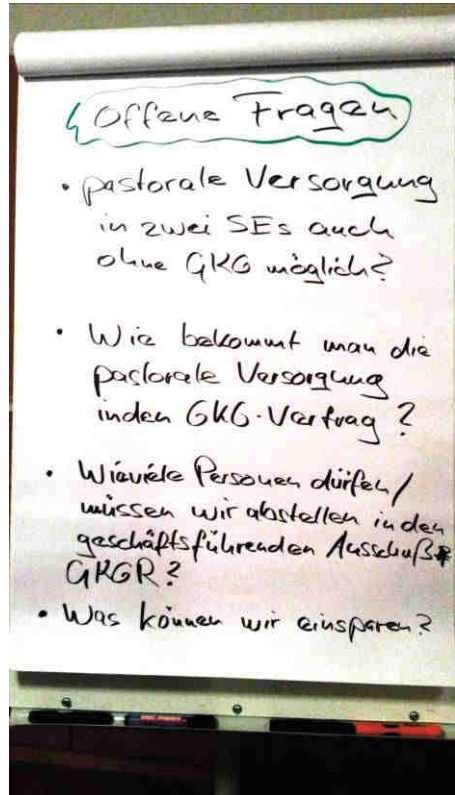 Offene Fragen
• pastorale Versorgung
in zwei SEs auch
ohne GKG möglich?
• Wie bekommt man die
pastorale Versorgung
in den GKG-Vertrag?
• Wieviele Personen dürfen/
müssen wir abstellen in den
geschäftsführenden Ausschuß
GKGR?
• Was können wir einsparen?